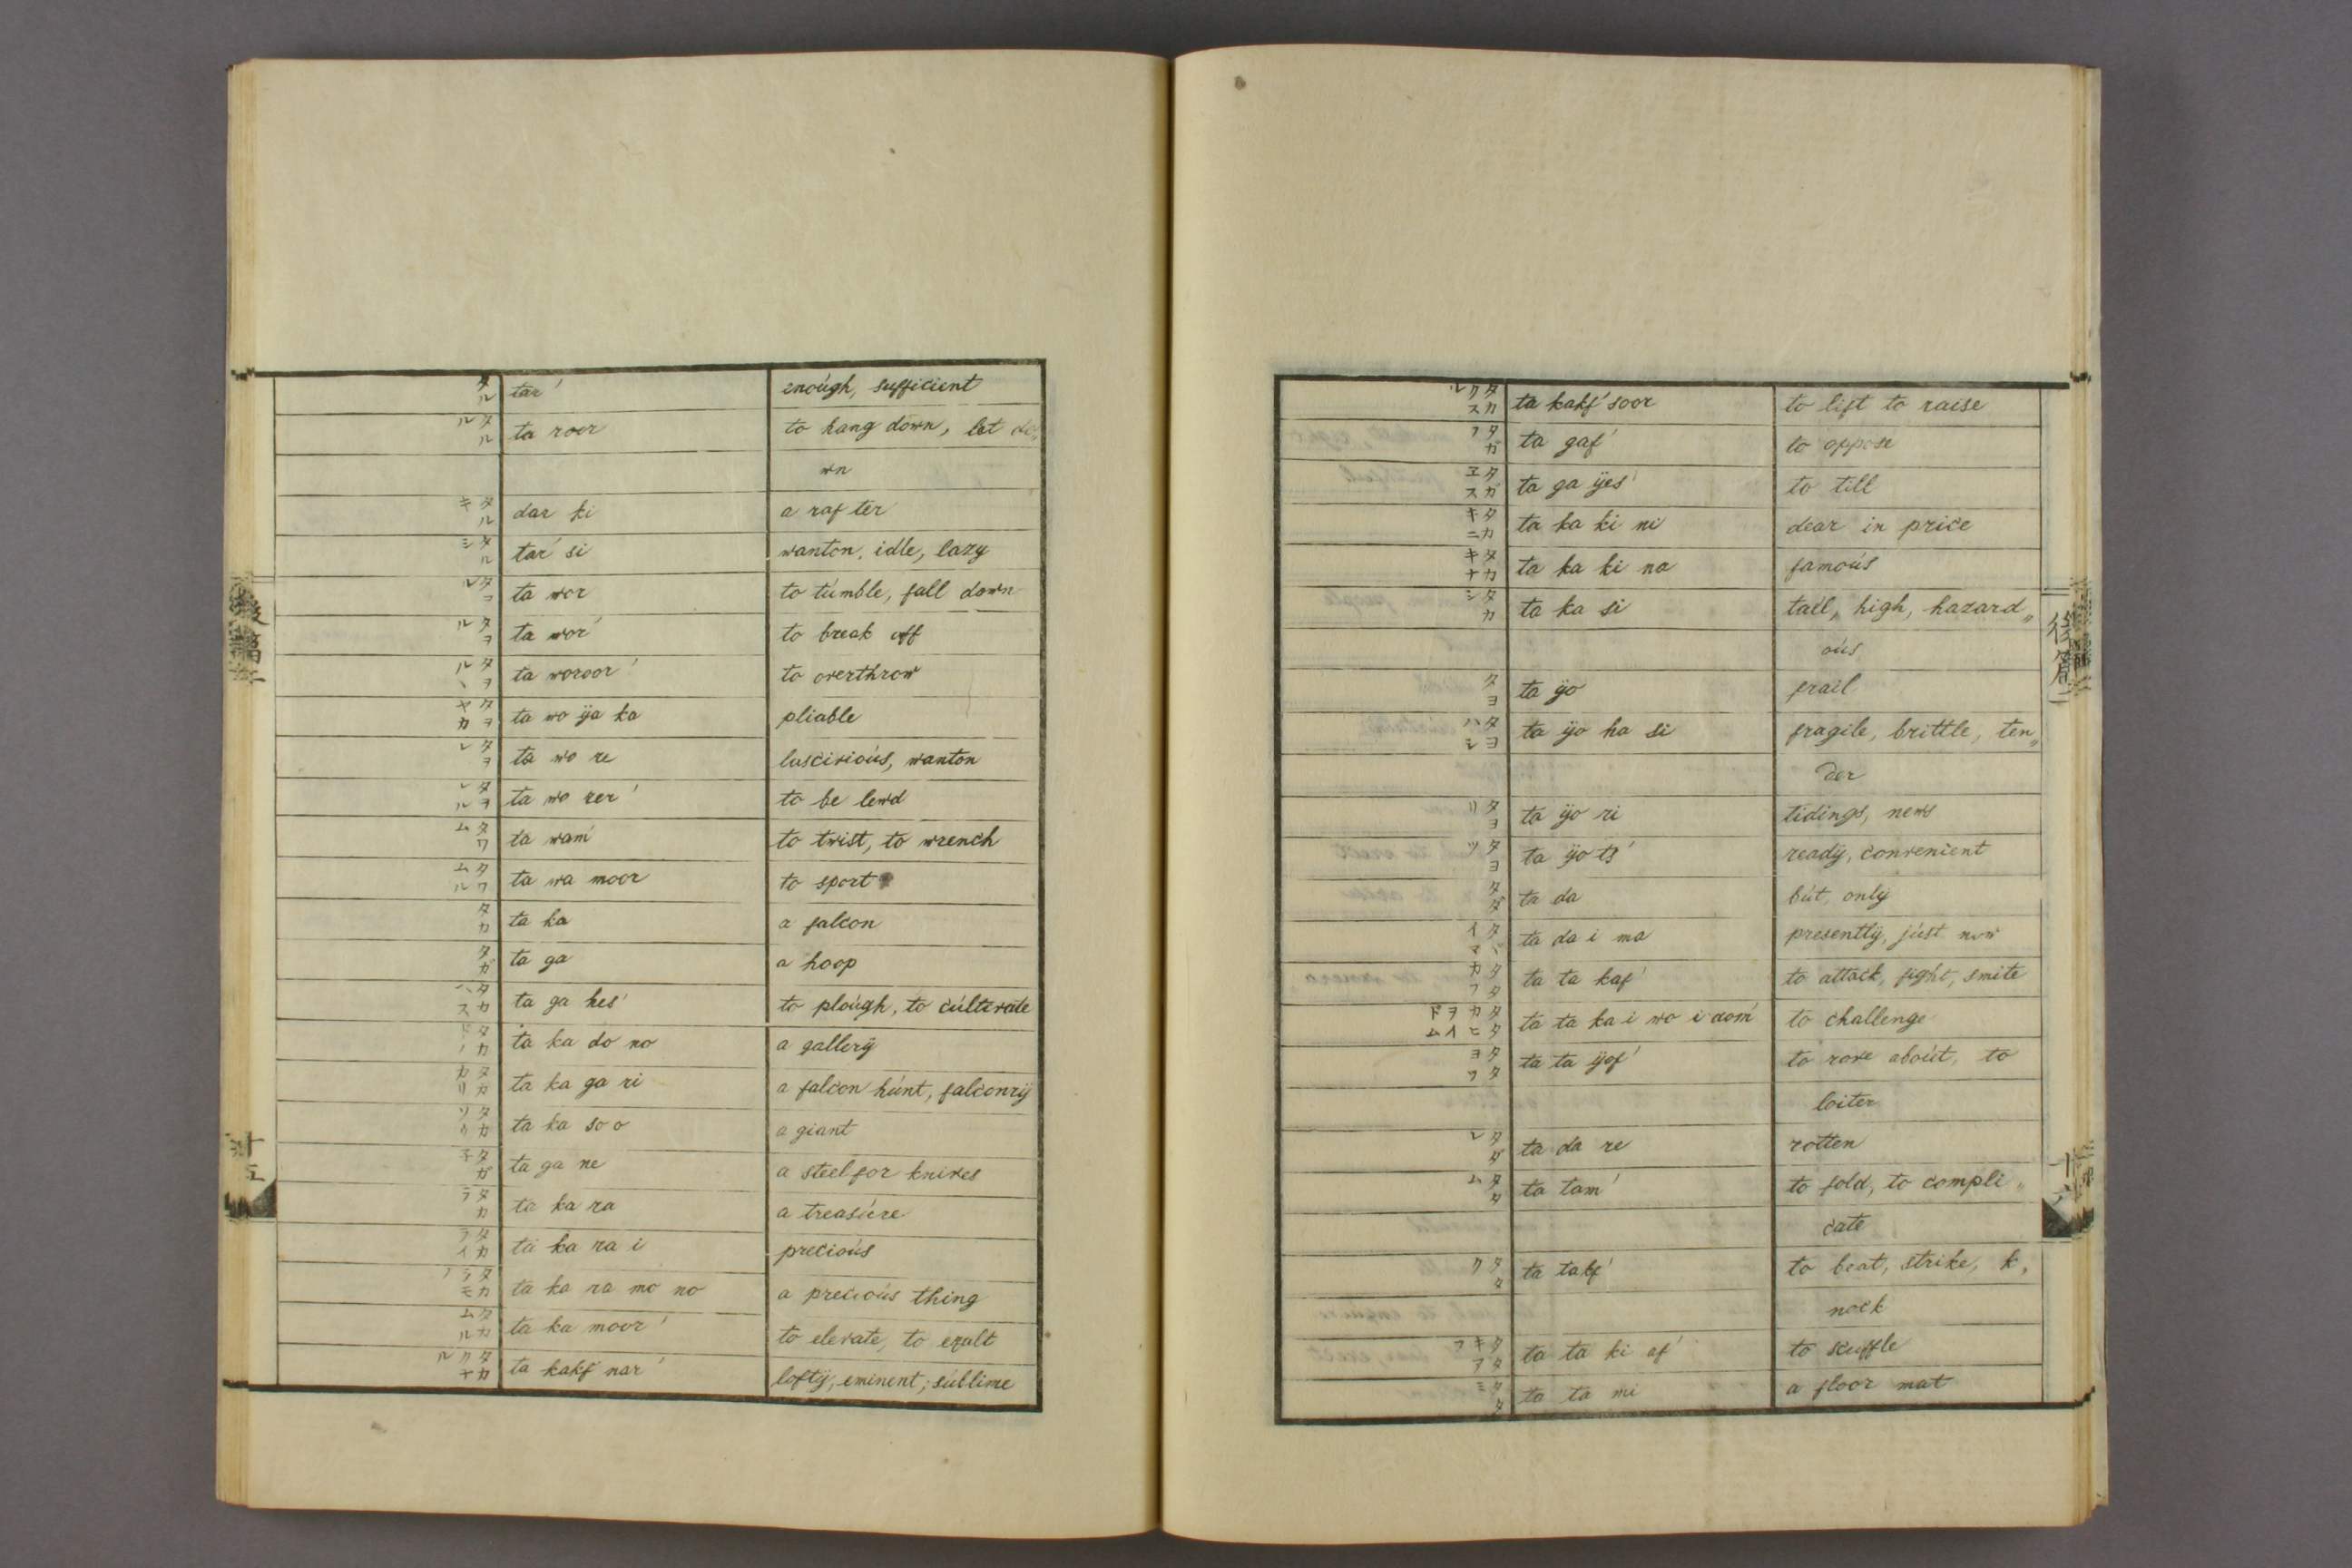 タル tar' enoúgh, sufficient
タルル ta roer to hang down, let do„
wn
タルキ dar ki a rafter
タルシ tar' si wanton, idle, lazy
ta wor to túmble, fall down
タヲル ta wor' to break off
タヲヽル ta woroor' to overthrow
タヲヤカ ta wo ÿa ka pliable
タヲレ ta wo re lascivioús, wanton
タヲレル ta wo rer' to be lewd
タワム ta wam' to twist, to wrench
タワムル ta wa moor to sport
タカ ta ka a falcon
タガ ta ga a hoop
タカヘス ta ga hes' to ploúgh, to cúltivate
タカドノ ta ka do no a gallerÿ
タカカリ ta ka ga ri a falcon húnt, falconrÿ
ta ka so o a giant
タガネ ta ga ne a steel for knives
タカラ ta ka ra a treasúre
タカライ ta ka ra i precioús
タカラモノ ta ka ra mo no a precioús thing
タカムル ta ka moor' to elevate, to exalt
タカクナル ta kakf nar' loftÿ, eminent; súblime
タカクスル ta kakf' soor to lift to raise
タガフ ta gaf' to oppose
タガヱス ta ga ÿes' to till
タカキニ ta ka ki ni dear in price
タカキナ ta ka ki na famoús
タカシ ta ka si tall, high, hazard„
oús
タヨ ta ÿo frail
タヨハシ ta ÿo ha si fragile, brittle, ten„
der
タヨリ ta ÿo ri tidings, news
タヨツ ta ÿo ts' readÿ, convenient
タダ ta da bút, onlÿ
タヾイマ ta da i ma presentlÿ, júst now
タタカフ ta ta kaf' to attack, fight, smite
タタカヒヲイドム ta ta ka i wo i dom' to challenge
タタヨフ ta ta ÿof' to rove aboút, to
loiter
タダレ ta da re rotten
タタム ta tam' to fold, to compli„
cate
タタク ta takf' to beat, strike, k„
nock
タタキアフ ta ta ki af' to scuffle
タタミ ta ta mi a floor mat
後篇